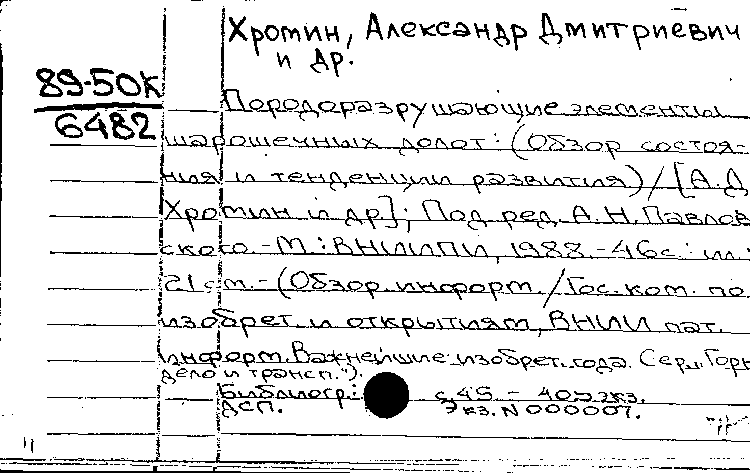 Хротин, Александр Дмитриевич
и др.
89-50К
6482
Породоразрушающие элементы
шарошечных долот: (Обзор состоя-
ния и тенденции развития) / [А.Д
Хротин и др.]; Под ред. А.Н. Павлов
ского. - М.: ВНИИПИ, 1988. - 46с.: ил.;
21 см. - (Обзор. информ. / Гос. ком. по
изобрет. и открытиям, ВНИИ пат.
информ. Важнейшие изобрет. года. Сер. „Горн
дело и трансп.").
Библиогр.: с. 45 - 405 экз.
ДСП. Экз. N 000007.